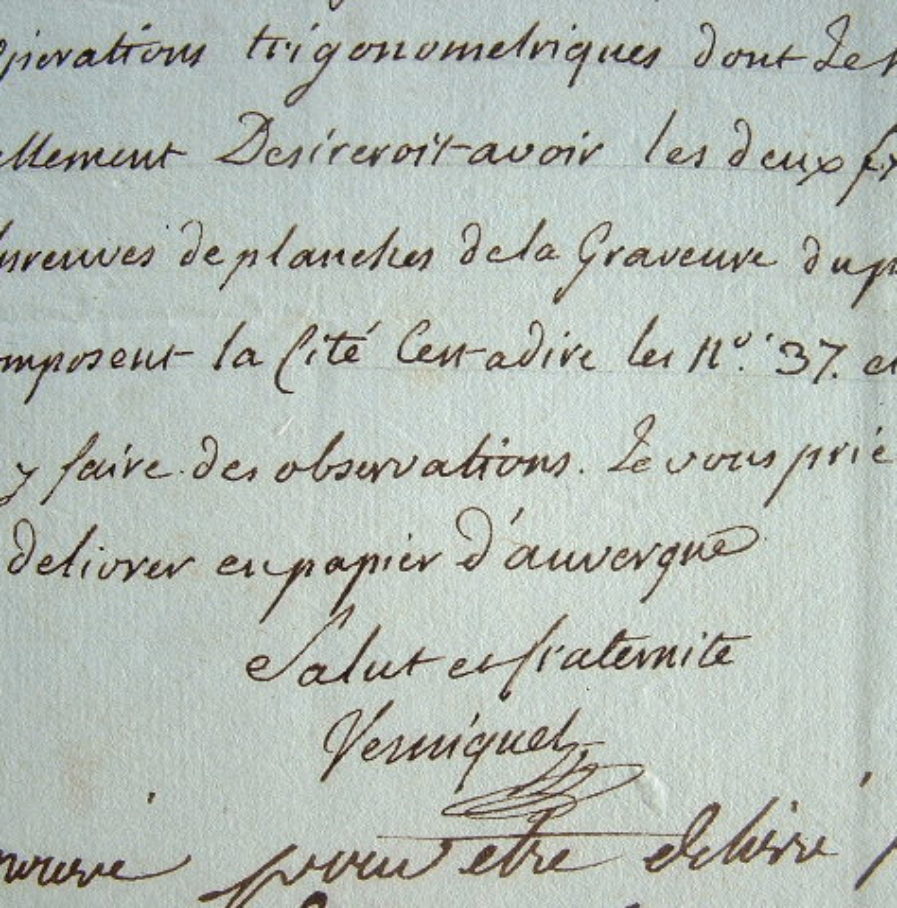 operations trigonometriques dont Je
ellement Desireroit avoir les deux
Epreuves de planches de la Graveure du p
omposent la Cité Cest adire les N.os 37. et
y faire des observations. Je vous prie
delivrer en papier d'auvergne
Salut et fraternite
Verniquet
pour etre delivré